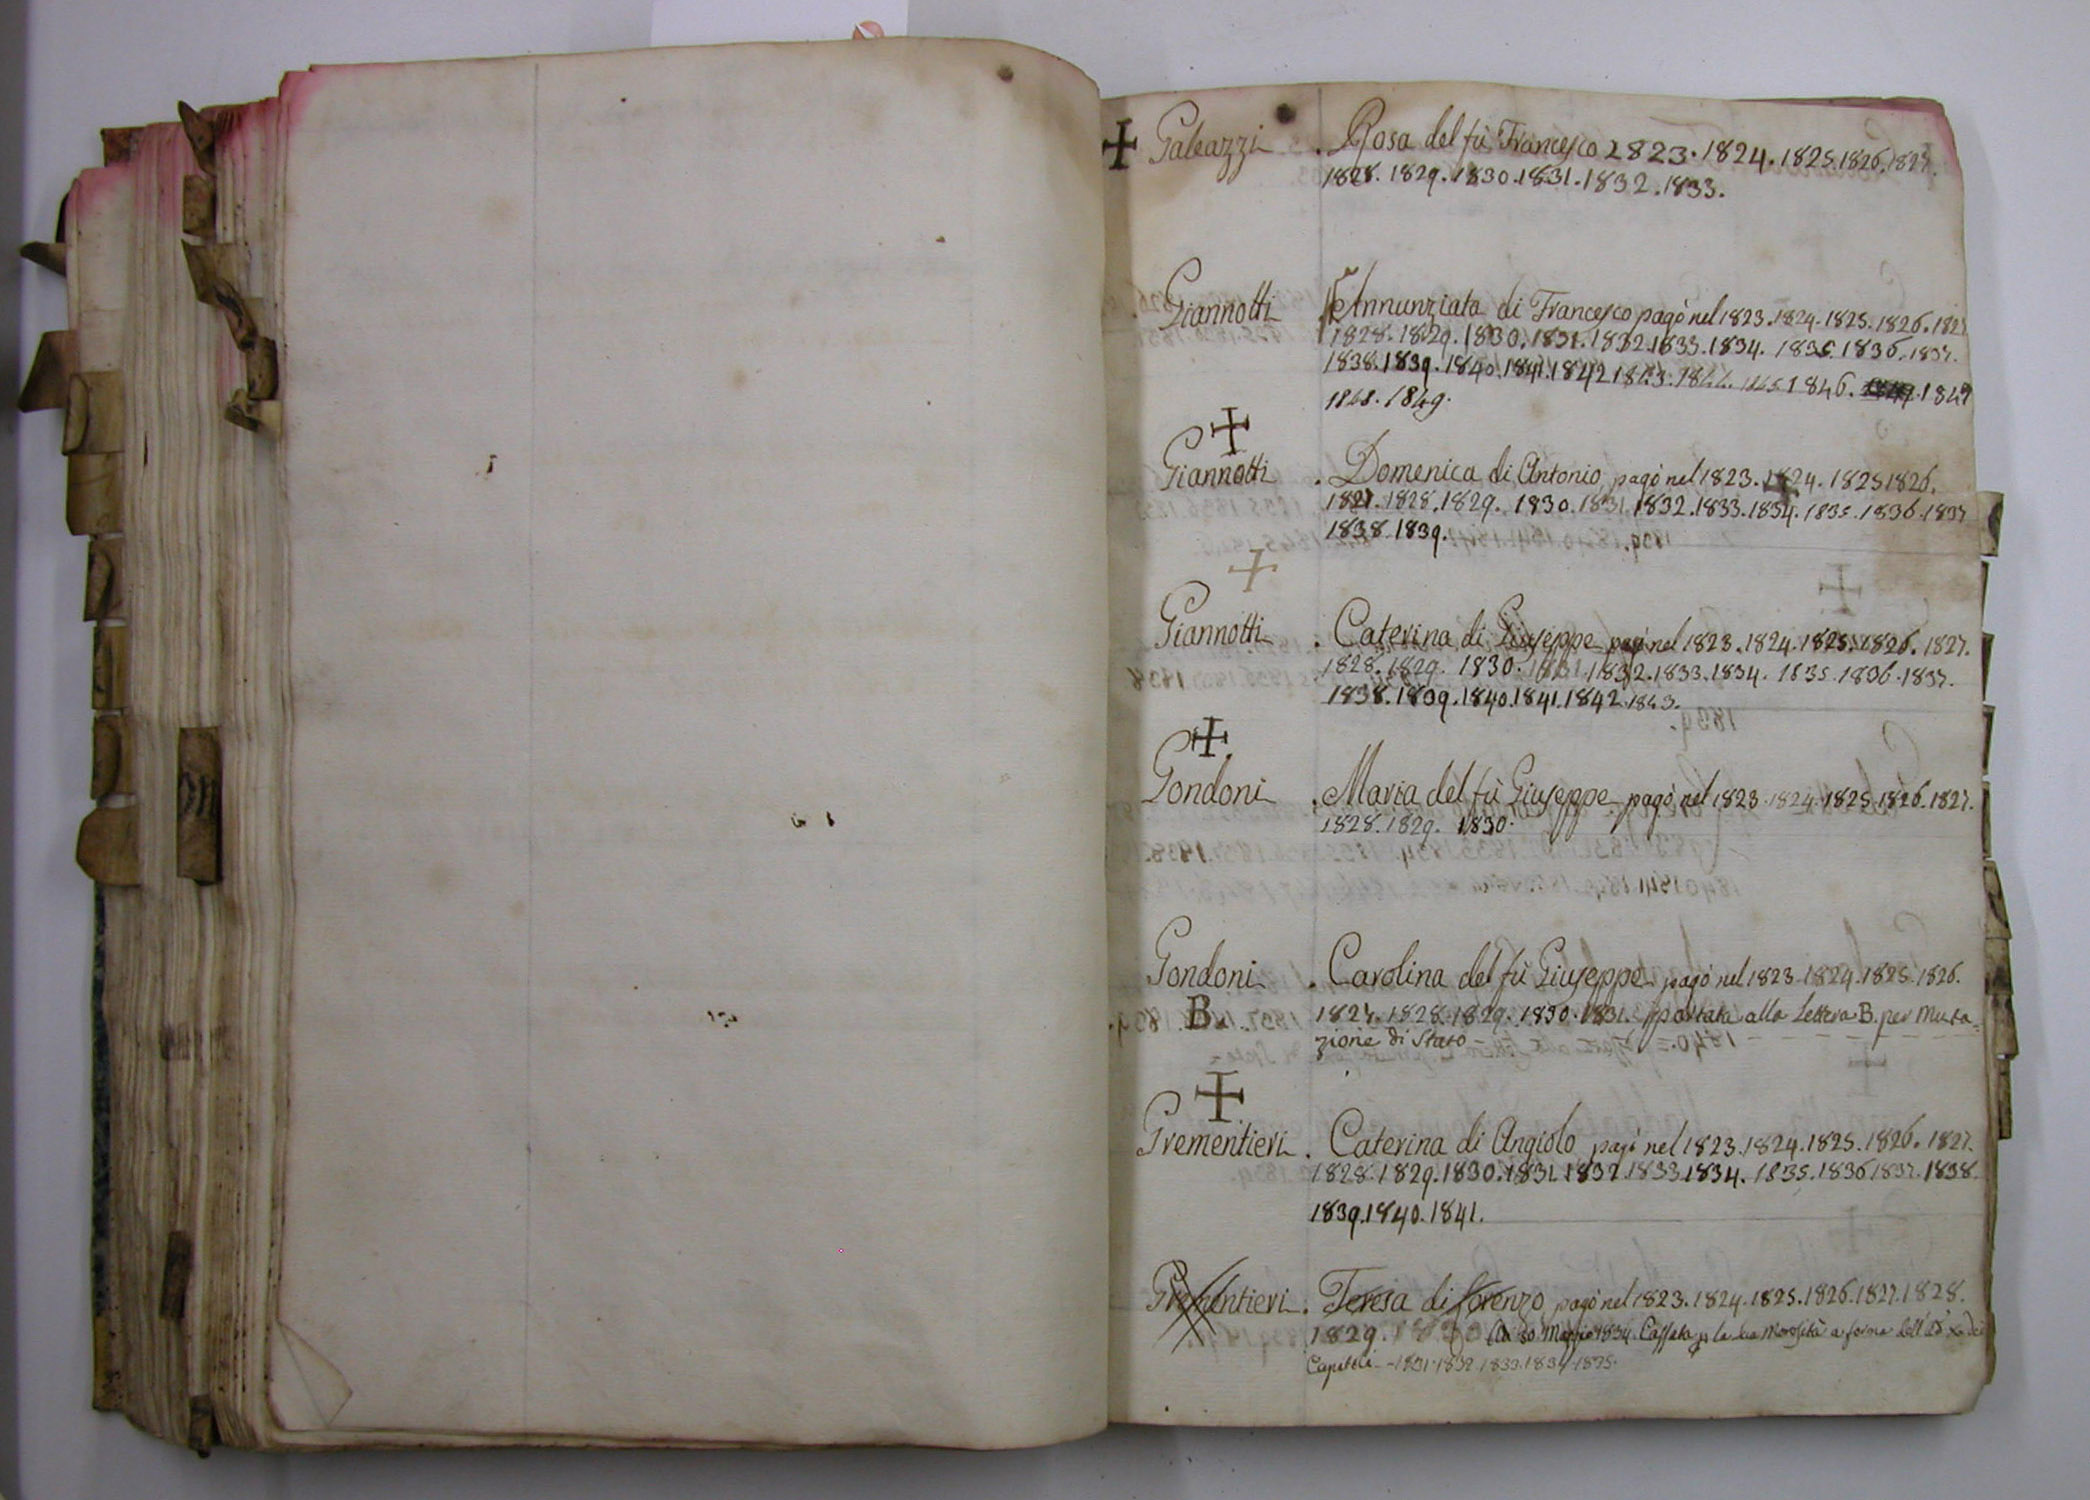 Galeazzi . Rosa del fù Francesco 1823. 1824. 1825. 1826. 1827.
1828. 1829. 1830. 1831. 1832. 1833.
Giannotti . Annunziata di Francesco pagò nel 1823. 1824. 1825. 1826. 1827
1828. 1829. 1830. 1831. 1832. 1833. 1834. 1835. 1836. 1837.
1838. 1839. 1840. 1841. 1842 1843. 1844. 1845 1846. 1847
1848. 1849.
Giannotti . Domenica di Antonio, pagò nel 1823. 1824. 1825 1826.
1827. 1828. 1829. 1830. 1831. 1832. 1833. 1834. 1835. 1836. 1837
1838. 1839.
Giannotti . Caterina di Giuseppe pagò nel 1823. 1824. 1825. 1826. 1827.
1828. 1829. 1830. 1831. 1832. 1833. 1834. 1835. 1836. 1837.
1838. 1839. 1840. 1841. 1842. 1843.
Gondoni . Maria del fù Giuseppe pagò nel 1823. 1824. 1825. 1826. 1827.
1828. 1829. 1830.
Gondoni . Carolina del fù Giuseppe pagò nel 1823. 1824. 1825. 1826.
B. 1827. 1828. 1829. 1830. 1831. portata alla Lettera B. per muta=
zione di Stato
Grementieri . Caterina di Angiolo pagò nel 1823. 1824. 1825. 1826. 1827.
1828. 1829. 1830. 1831. 1832. 1833. 1834. 1835. 1836. 1837. 1838.
1839. 1840. 1841.
Grementieri . Teresa di Lorenzo pagò nel 1823. 1824. 1825. 1826. 1827. 1828.
1829. 1830 30 Maggio 1834. Cassata p la sua Morosità a forma dell'
Capitoli - 1831. 1832. 1833. 1834. 1835.